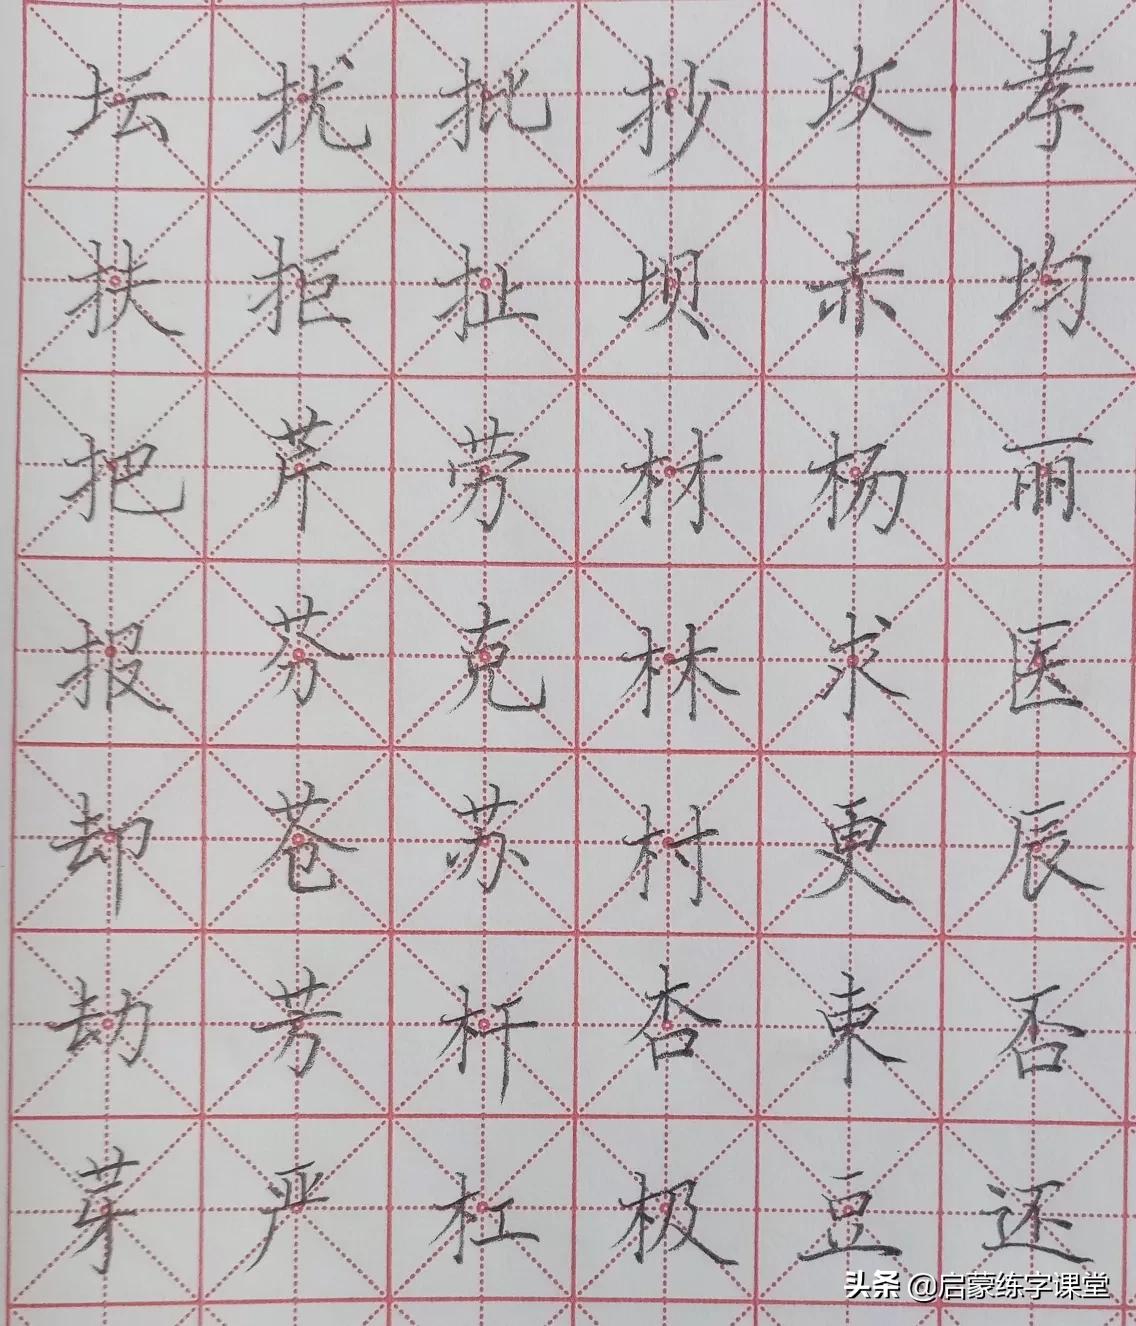 坛扰批抄攻孝
扶拒扯坝赤均
把芹劳材杨丽
报芬克林求医
却苍苏村更辰
劫芳杆杏束否
芽严杠极豆还
头条 @启蒙练字课堂